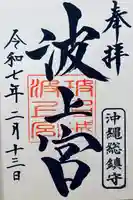 奉拝
沖縄総鎮守
波上宮
令和七年二月十三日